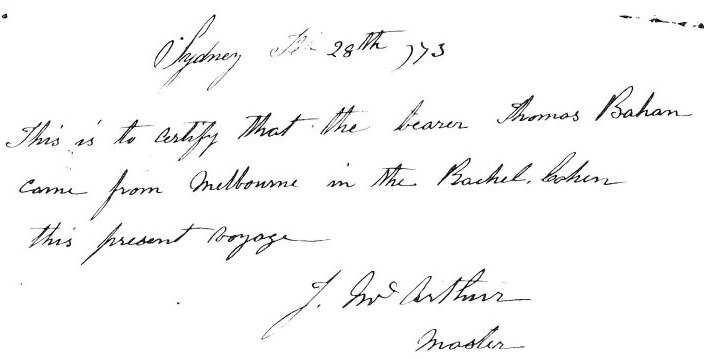 Sydney 28th /73
This is to certify that the bearer Thomas Bahan
came from Melbourne in the Rachel Cohen
this present voyage
J. McArthur
Master